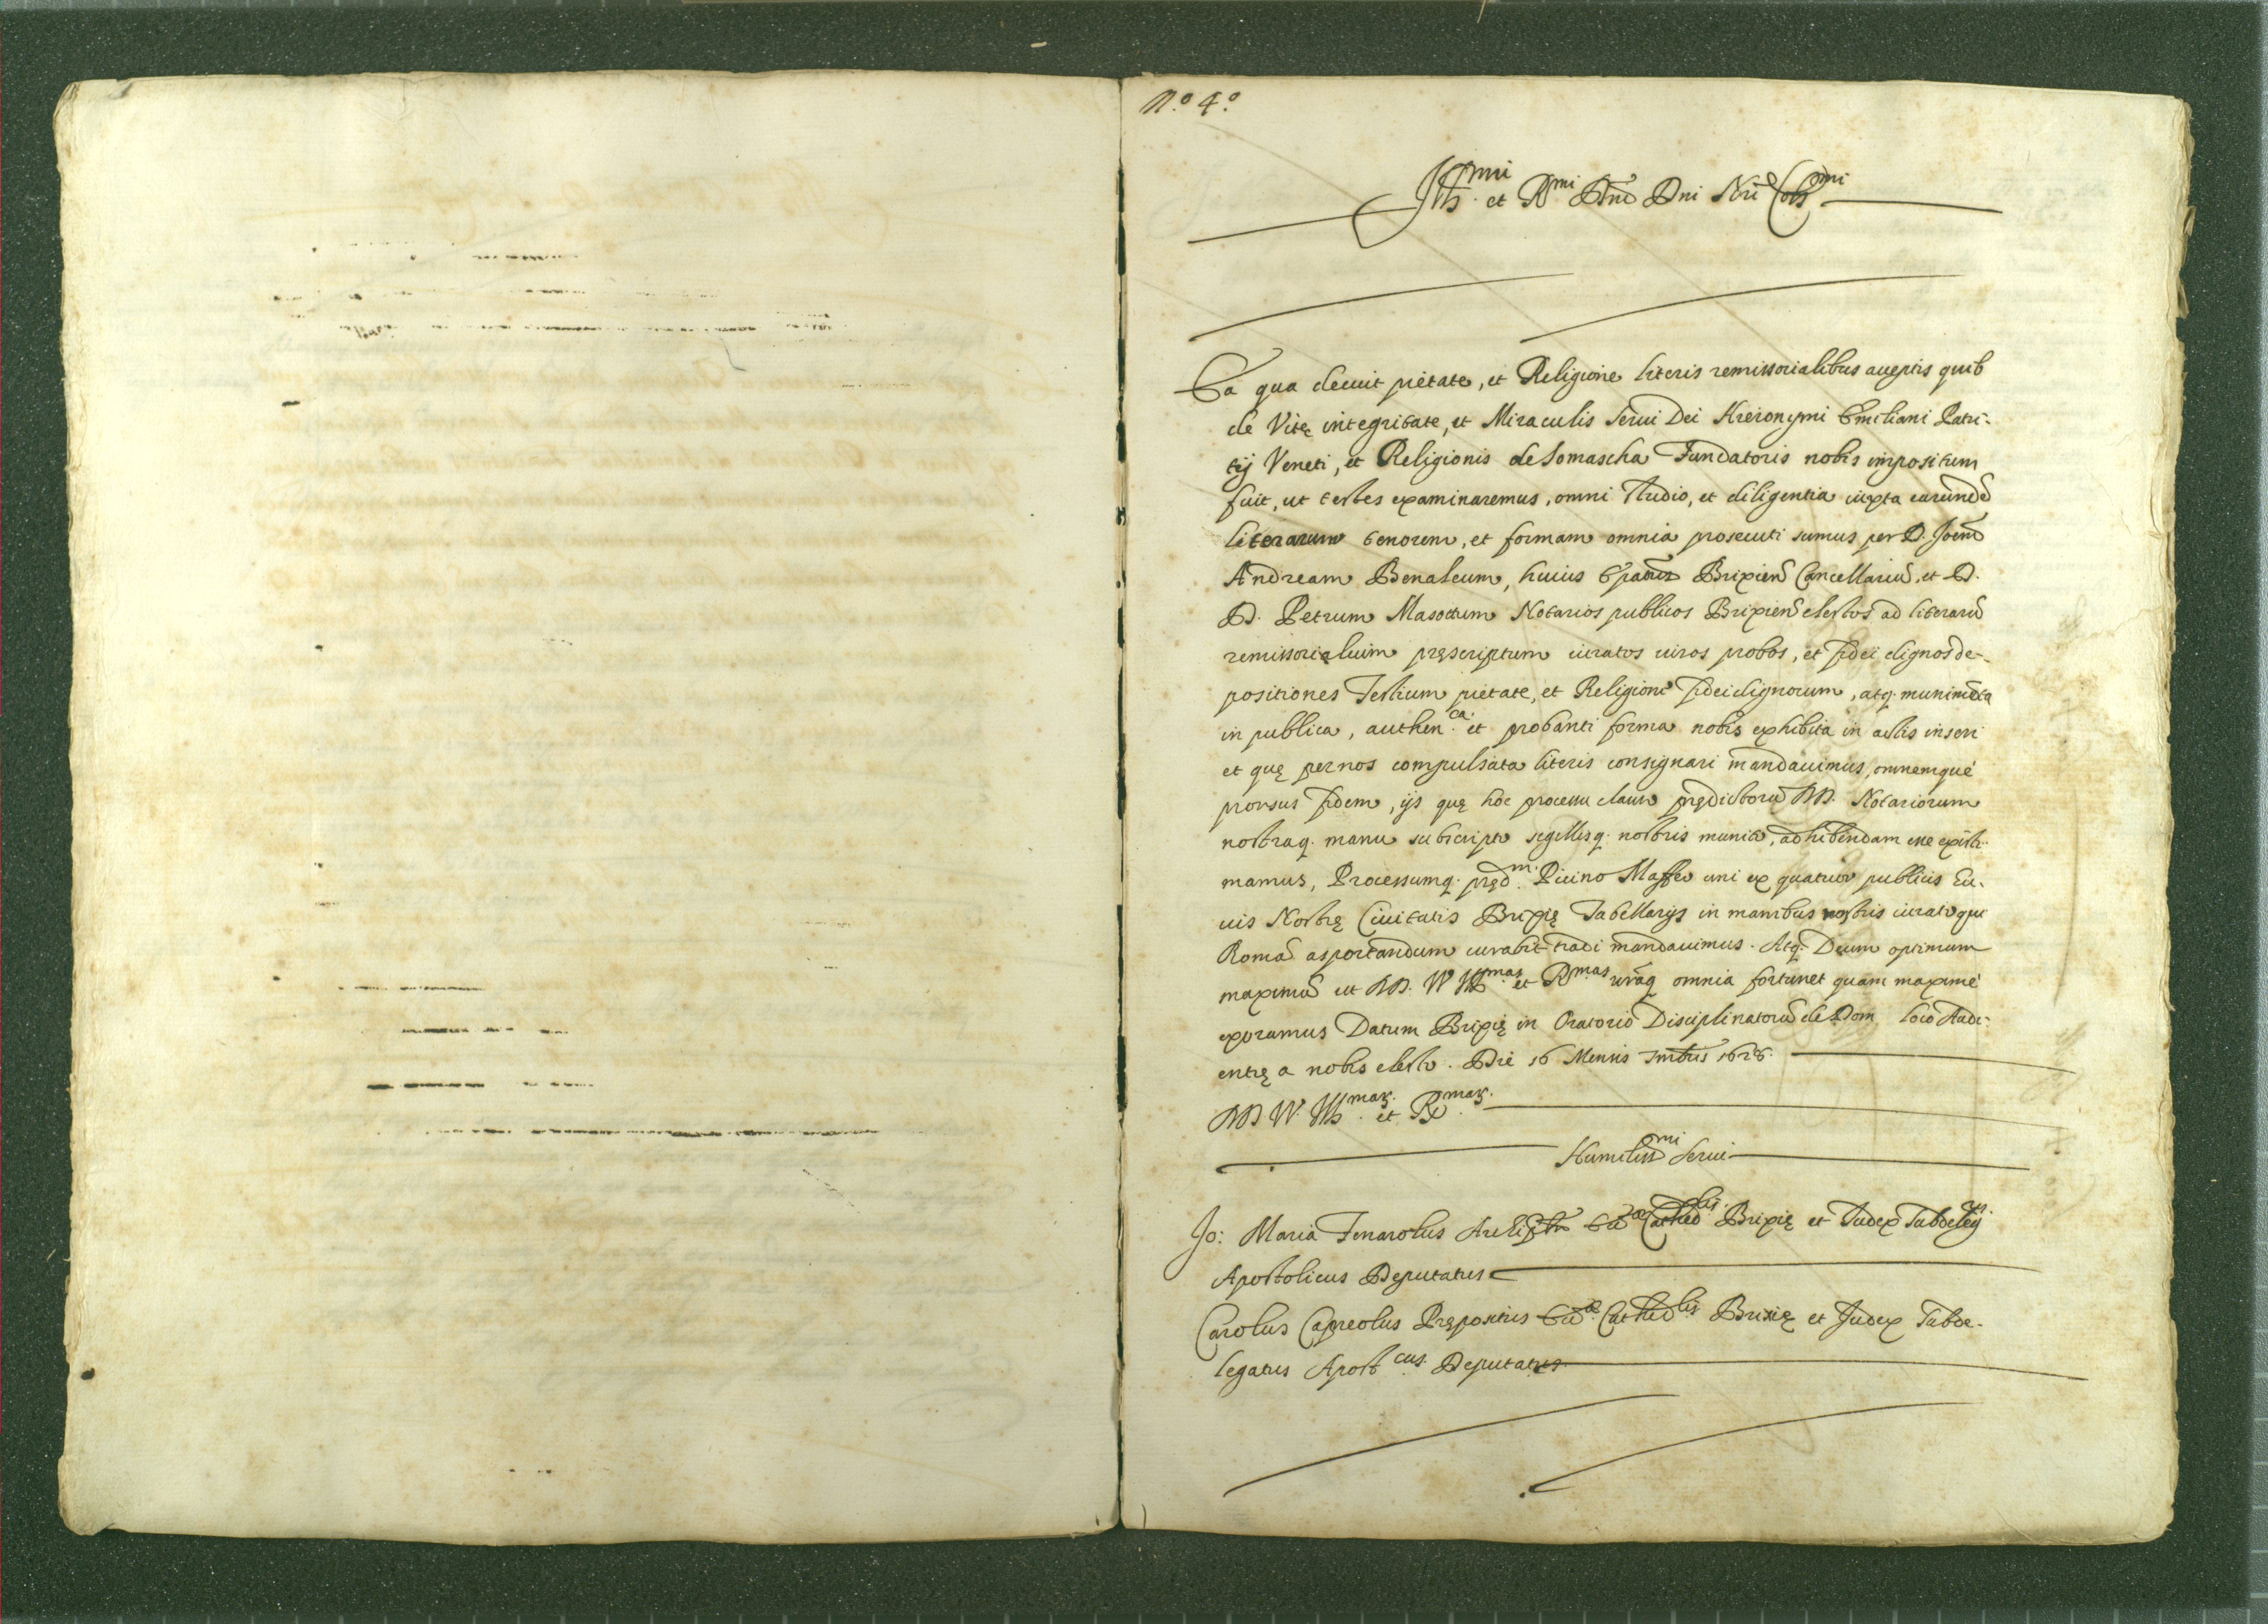 N.º 4.º
Ill.mi et R.mi Dni Dni Nri Cols.mi
Ea qua decuit pietate, et Religione literis remissorialibus acceptis quib
de Vitę integritate, et Miraculis Serui Dei Hieronymi Emiliani Patri-
tij Veneti, et Religionis de Somascha Fundatoris nobis impositum
fuit, ut testes examinaremus, omni studio, et diligentia iuxta earundē
literarum tenorem, et formam omnia prosecuti sumus per D. Joēm
Andream Benaleum, huius Epatus Brixieñ Cancellariū, et D.
D. Petrum Masottum Notarios publicos Brixieñ electos ad literarū
remissorialium pręscriptum iuratos uiros probos, et fidei dignos de-
positiones Testium pietate, et Religione fidei dignorum, atq. munimēta
in publica, authen.ca et probanti forma nobis exhibita in actis inseri
et quę per nos compulsata literis consignari mandauimus, omnemque
prorsus fidem, ijs quę hoc processu clauso prędictorū DD. Notariorum
nostraq. manu subscripto sigillisq. nostris munito, adhibendam esse existi-
mamus, Processumq. pręd.m Picino Maffeo uni ex quatuor publicis Ci-
uis Nostrę Ciuitatis Brixię Tabellarijs in manibus nostris iurato qui
Romā asportandum curabit tradi mandauimus. Atq. Deum optimum
maximū ut DD. VV. Ill.mas et R.mas uraq omnia fortunet quam maximè
exoramus Datum Brixię in Oratorio Disciplinatorū de Dom loco Audi-
entię a nobis electo. Die 16 Mensis 1628.
DD. VV. Ill.mar. et R.mar.
Humiliss.mi Serui
Jo: Maria Fenarolus Cathed.lis Brixię et Iudex Subdeleg.
Apostolicus Deputatus
Carolus Capreolus Prępositus Cathed.lis Brixię et Judex Subde-
legatus Apost.cus Deputatus